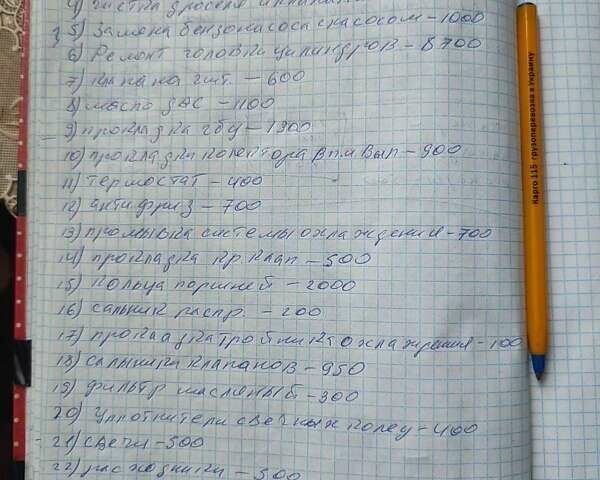 4) чистка дросел
5) Замена бензонасоса с насосом - 1000
6) Ремонт головки цилиндров - 8700
7) клапана 2 шт. - 600
8) масло ДВС - 1100
9) прокладка гбц - 1300
10) прокладки колектора вп. и вып - 900
11) термостат - 400
12) антифриз - 700
13) промывка системы охлаждения - 700
14) прокладка кр. клап - 500
15) кольца поршней - 2000
16) сальник распр. - 200
17) прокладка тройника охлаждения - 100
18) сальники клапанов - 950
19) фильтр масленый - 300
20) уплотнители свечных колец - 400
21) свечи - 500
22) расходники - 500
Карго 115 грузоперевозка в Украину